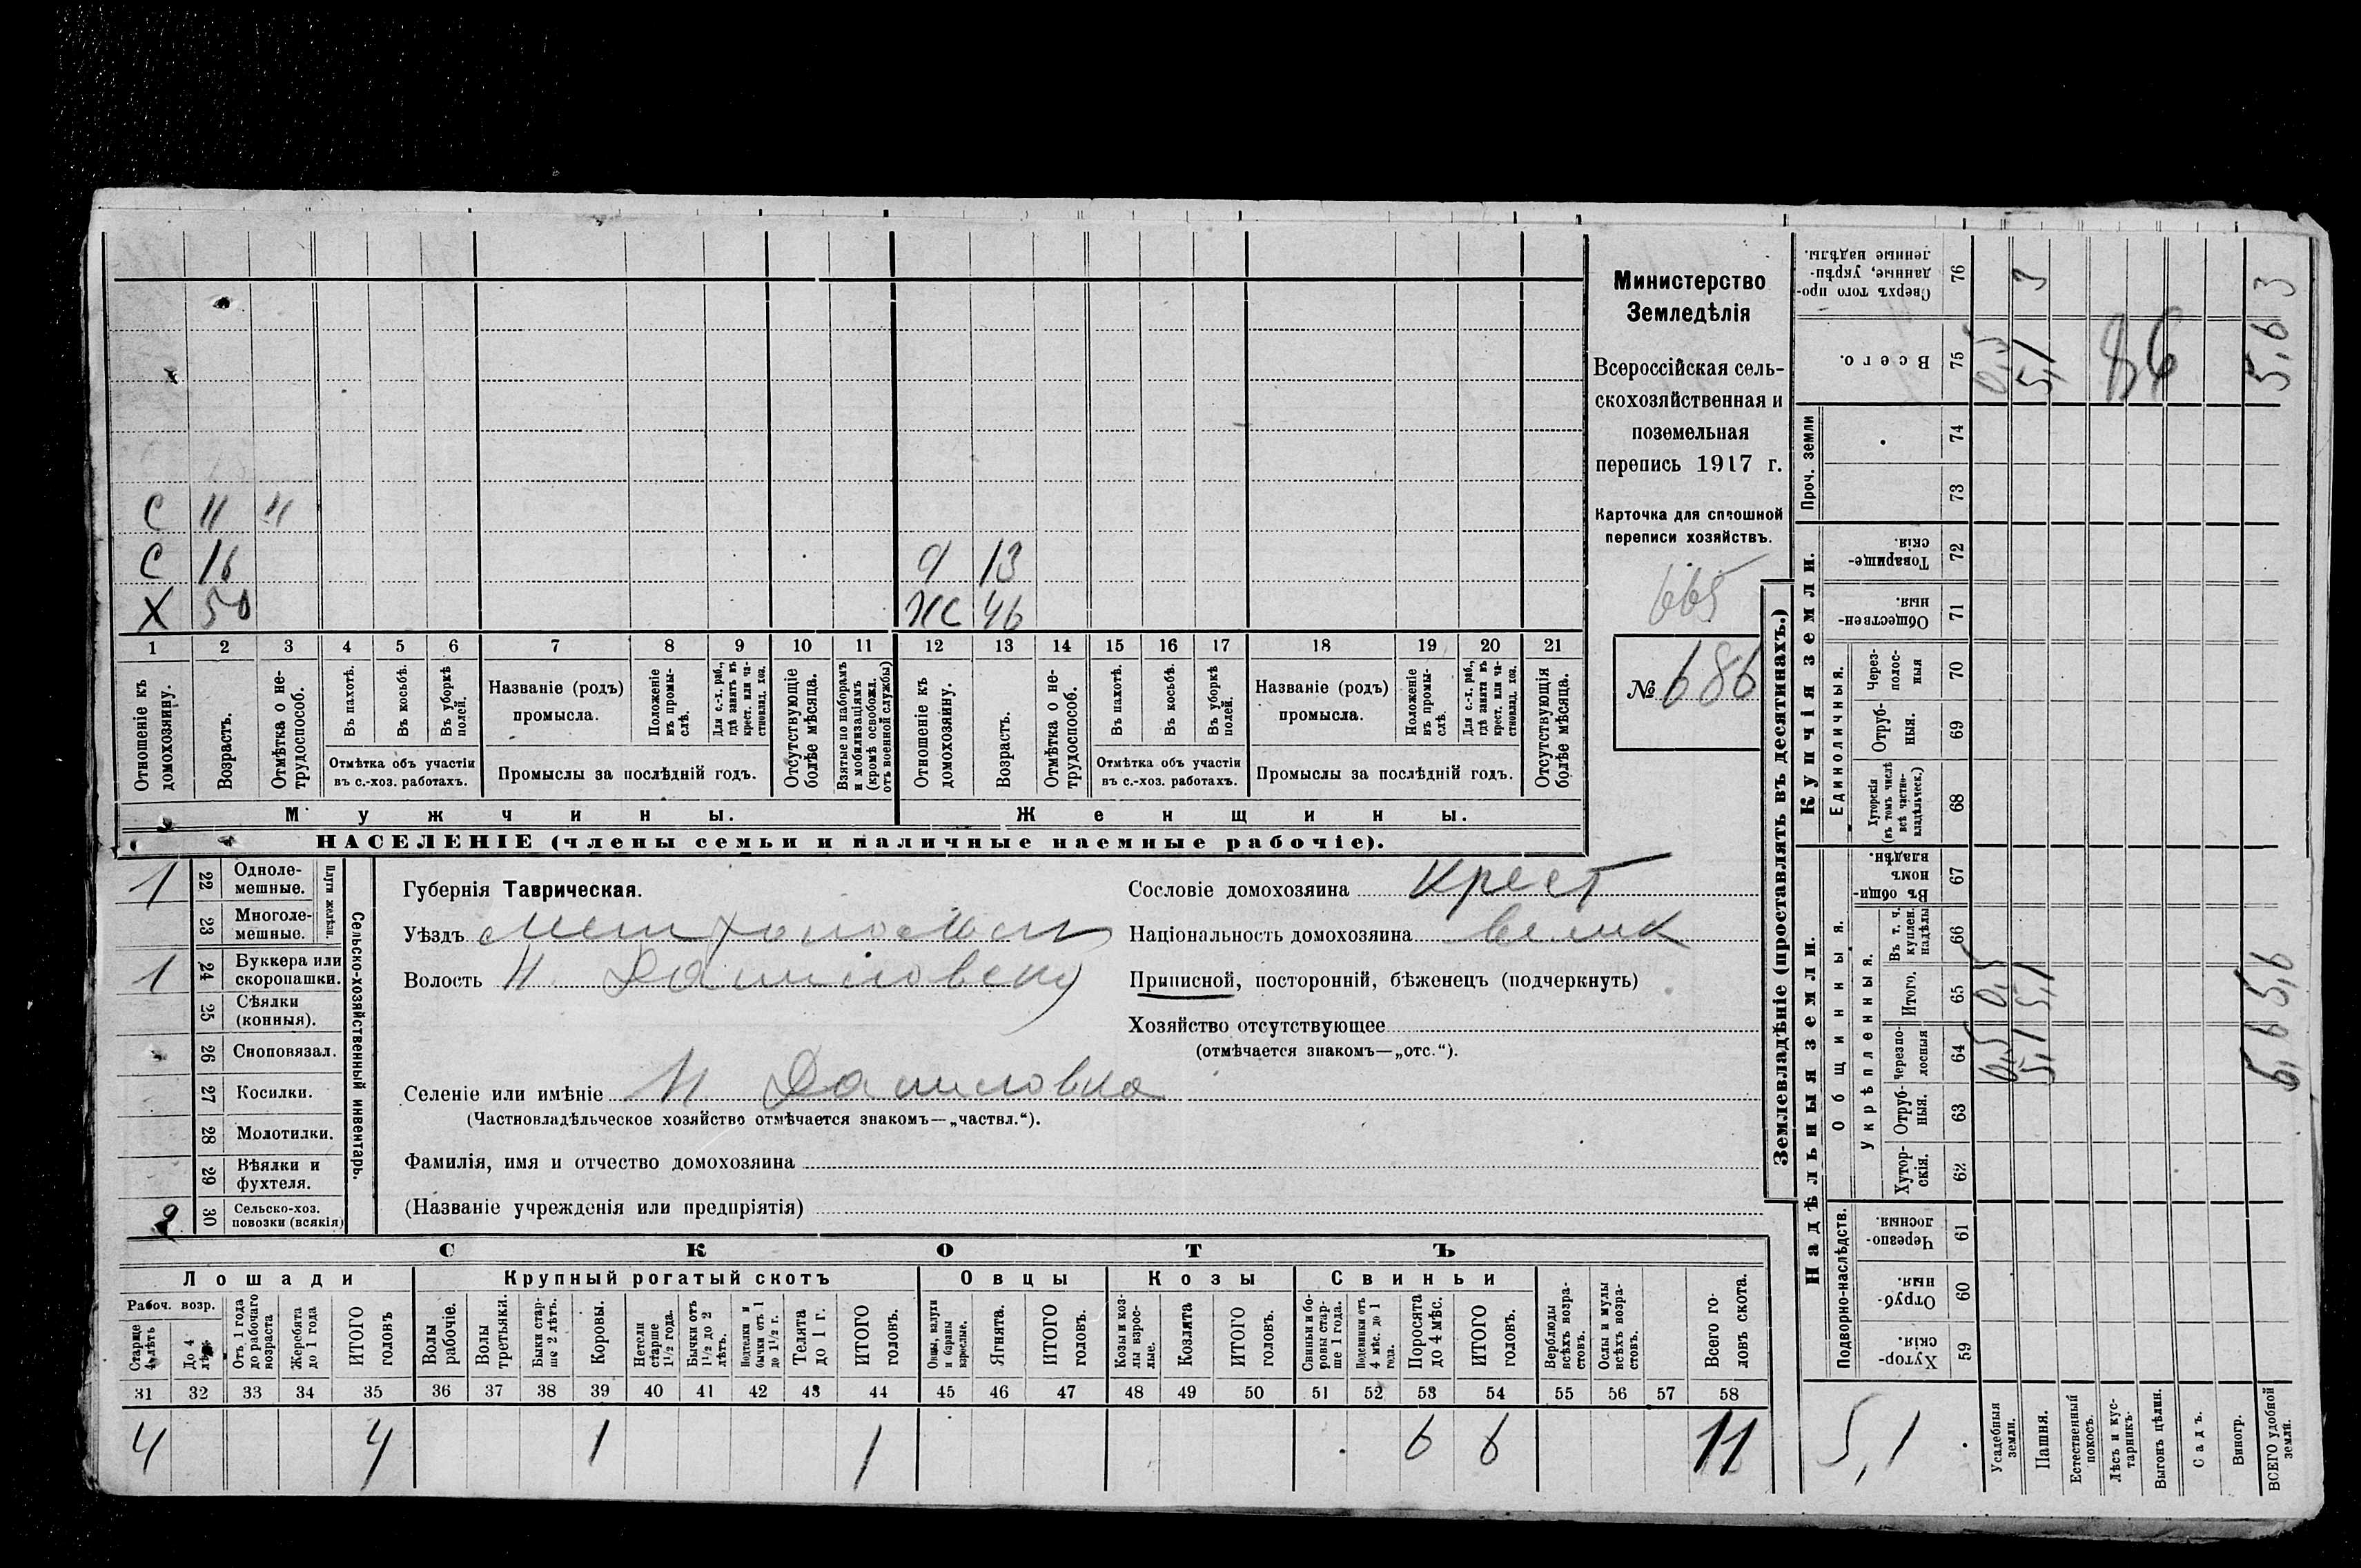 С 11 "
С 16
Х 50
д 13
ж 46
1 2 3 4 5 6 7 8 9 10 11 12 13 14 15 16 17 18 19 20 21
Отношеніе къ домохозяину.
Возрастъ.
Отмѣтка о не-
трудоспособ.
Въ пахотѣ.
Въ косьбѣ.
Въ уборкѣ
полей.
Отмѣтка объ участіи
въ с.-хоз. работахъ.
Названіе (родъ)
промысла.
Положеніе
въ промы-
слѣ.
Для с.-х. раб.,
гдѣ занятъ въ
крест. или ча-
стновлад. хоз.
Промыслы за послѣдній годъ.
Отсутствующіе
болѣе мѣсяца.
Взятые по наборамъ
и мобилизаціямъ
(кромѣ освобожд.
отъ военной службы)
Отношеніе къ
домохозяину.
Возрастъ.
Отмѣтка о не-
трудоспособ.
Въ пахотѣ.
Въ косьбѣ.
Въ уборкѣ
полей.
Отмѣтка объ участіи
въ с.-хоз. работахъ.
Названіе (родъ)
промысла.
Положеніе
въ промы-
слѣ.
Для с.-х. раб.,
гдѣ занята въ
крест. или ча-
стновлад. хоз.
Промыслы за послѣдній годъ.
Отсутствующія
болѣе мѣсяца.
Мужчины.
Женщины.
НАСЕЛЕНІЕ (члены семьи и наличные наемные рабочіе).
Министерство
Земледѣлія
Всероссійская сель-
скохозяйственная и
поземельная
перепись 1917 г.
Карточка для сплошной
переписи хозяйствъ.
665
№ 686
1 22 Одноле-
мешные.
23 Многоле-
мешные.
Плуги желѣзн.
1 24 Буккера или
скоропашки.
25 Сѣялки
(конныя).
26 Сноповязал.
27 Косилки.
28 Молотилки.
29 Вѣялки и
фухтеля.
2 30 Сельско-хоз.
повозки (всякія)
Сельско-хозяйственный инвентарь.
Губернія Таврическая.
Уѣздъ
Волость Н. Даниловск
Селеніе или имѣніе Н Даниловка
(Частновладѣльческое хозяйство отмѣчается знакомъ—„частвл.“).
Фамилія, имя и отчество домохозяина
(Названіе учрежденія или предпріятія)
Сословіе домохозяина Крест
Національность домохозяина велик
Приписной, посторонній, бѣженецъ (подчеркнуть)
Хозяйство отсутствующее
(отмѣчается знакомъ—„отс.“).
СКОТЪ
Лошади
Крупный рогатый скотъ
Овцы
Козы
Свиньи
Рабоч. возр.
Старше
4 лѣтъ
До 4
лѣтъ
Отъ 1 года
до рабочаго
возраста
Жеребята
до 1 года
ИТОГО
головъ
Волы
рабочіе.
Волы
третьяки.
Быки стар-
ше 2 лѣтъ.
Коровы.
Нетели
старше
1½ года.
Бычки отъ
1½ до 2
лѣтъ.
Подтелки и
бычки отъ 1
до 1½ г.
Телята
до 1 г.
ИТОГО
головъ.
Овцы, валухи
и бараны
взрослые.
Ягнята.
ИТОГО
головъ.
Козы и коз-
лы взрос-
лые.
Козлята
ИТОГО
головъ.
Свиньи и бо-
ровы стар-
ше 1 года.
Подсвинки отъ
4 мѣс. до 1
года.
Поросята
до 4 мѣс.
ИТОГО
головъ.
Верблюды
всѣхъ возра-
стовъ.
Ослы и мулы
всѣхъ возра-
стовъ.
Всего го-
ловъ скота.
31 32 33 34 35 36 37 38 39 40 41 42 43 44 45 46 47 48 49 50 51 52 53 54 55 56 57 58
4 4 1 1 6 6 11
Землевладѣніе (проставлять въ десятинахъ.)
Купчія земли.
Надѣльныя земли.
Сверхъ того про-
данные, укрѣп-
ленные надѣлы.
76 3 3
Всего.
75 0,5 5,1 86 5,6
Проч. земли
74
73
Товарище-
скія.
72
Обществен-
ныя.
71
Единоличныя.
Через-
полос-
ныя
70
Отруб-
ныя.
69
Хуторскія
(въ томъ числѣ
всѣ частно-
владѣльческ.)
68
Общинныя.
Въ общин-
номъ
владѣн.
67
Укрѣпленныя.
Въ т. ч.
куплен.
надѣлы
66
Итого.
65 0,5 5,1 5,6
Черезпо-
лосныя
64 0,5 5,1 5,6
Отруб-
ныя.
63
Хутор-
скія.
62
Подворно-наслѣдств.
Черезпо-
лосныя.
61
Отруб-
ныя.
60
Хутор-
скія.
59
5,1
Усадебныя
земли.
Пашня.
Естественный
покосъ.
Лѣсъ и кус-
тарникъ.
Выгонъ цѣлин.
Садъ.
Виногр.
ВСЕГО удобной
земли.